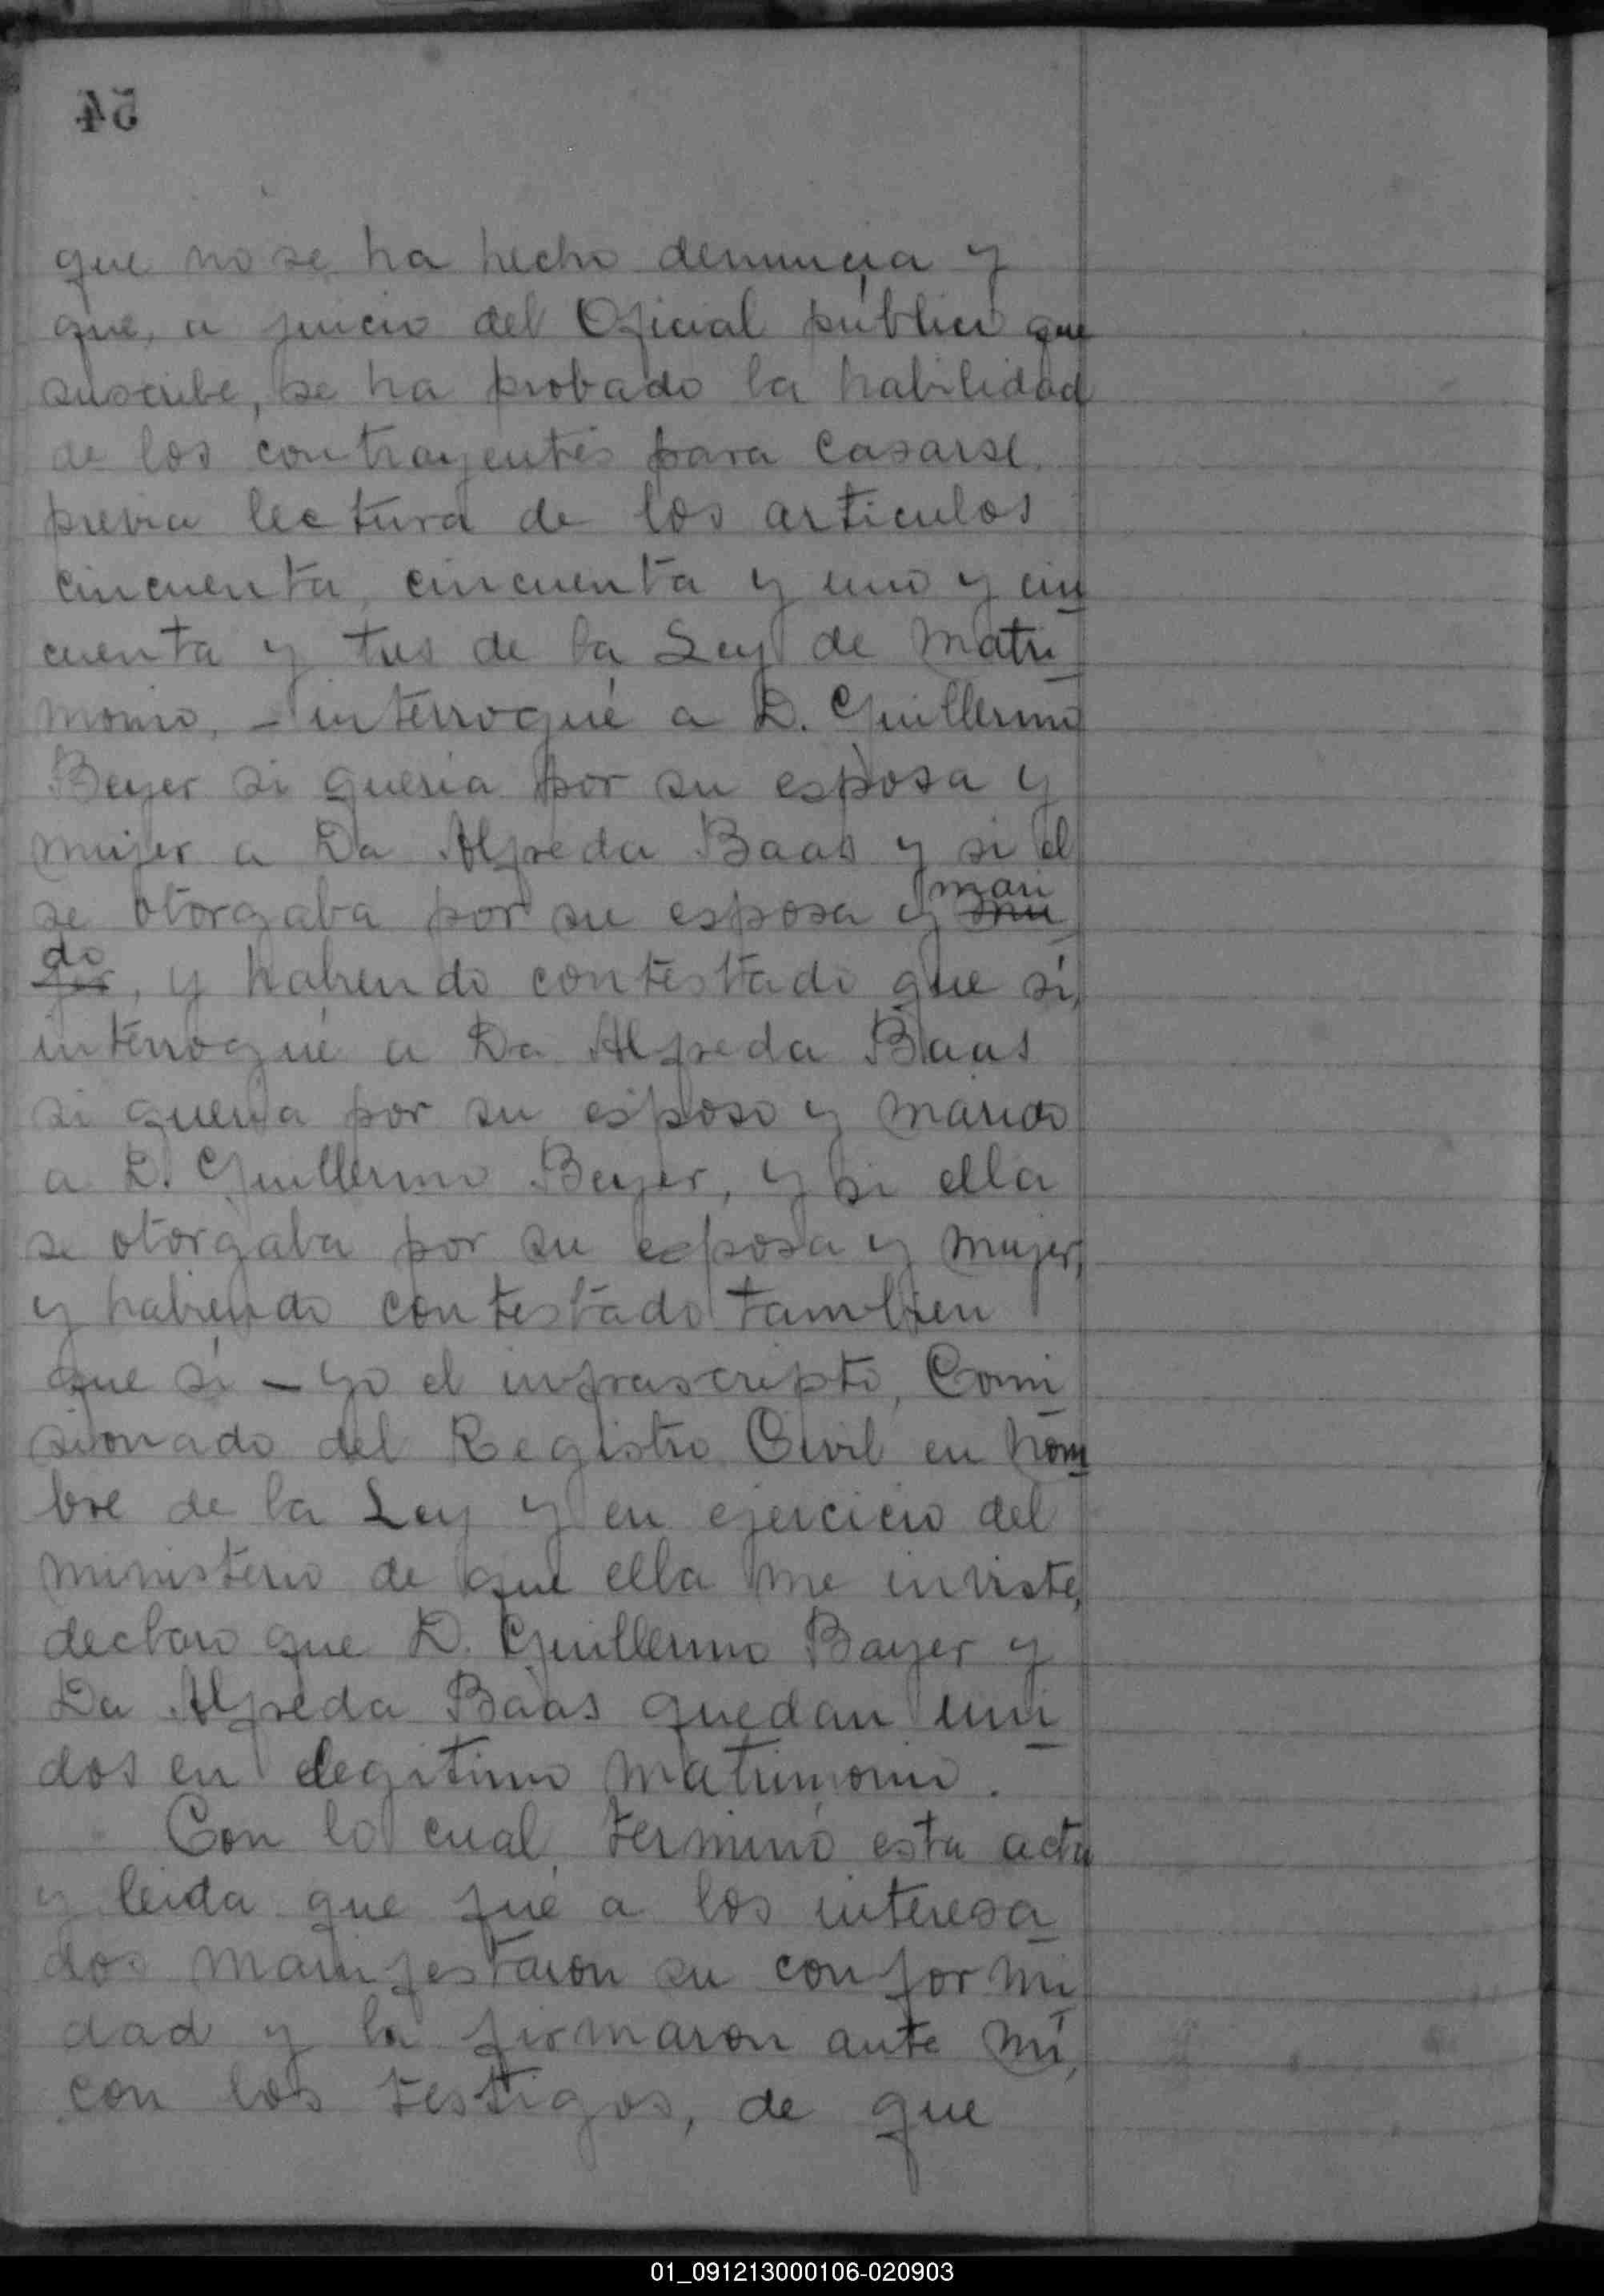 54
que no se ha hecho denuncia y
que, a juicio del Oficial público que
suscribe, se ha probado la habilidad
de los contrayentes para casarse.
previa lectura de los articulos
cincuenta, cincuenta y uno y cin
cuenta y tres de la Ley de Matri
monio, - interrogué a D. Guillermo
Beyer si queria por su esposa y
mujer a Da Alfreda Baas y si el
se otorgaba por su esposa y mu mari
jer do, y habiendo contestado que sí,
interrogué a Da Alfreda Baas
si queria por su esposo y marido
a D. Guillermo Beyer, y si ella
se otorgaba por su esposa y mujer,
y habiendo contestado tambien
que sí - yo el infrascripto, Comi
sionado del Registro Civil en nom
bre de la Ley y en ejercicio del
ministerio de que ella me inviste,
declaro que D. Guillermo Bayer y
Da Alfreda Baas quedan uni
dos en legitimo matrimonio.
Con lo cual, terminó esta acta
y leida que fué a los interesa
dos manifestaron su conformi
dad y la firmaron ante mí,
con los testigos, de que
01_091213000106-020903